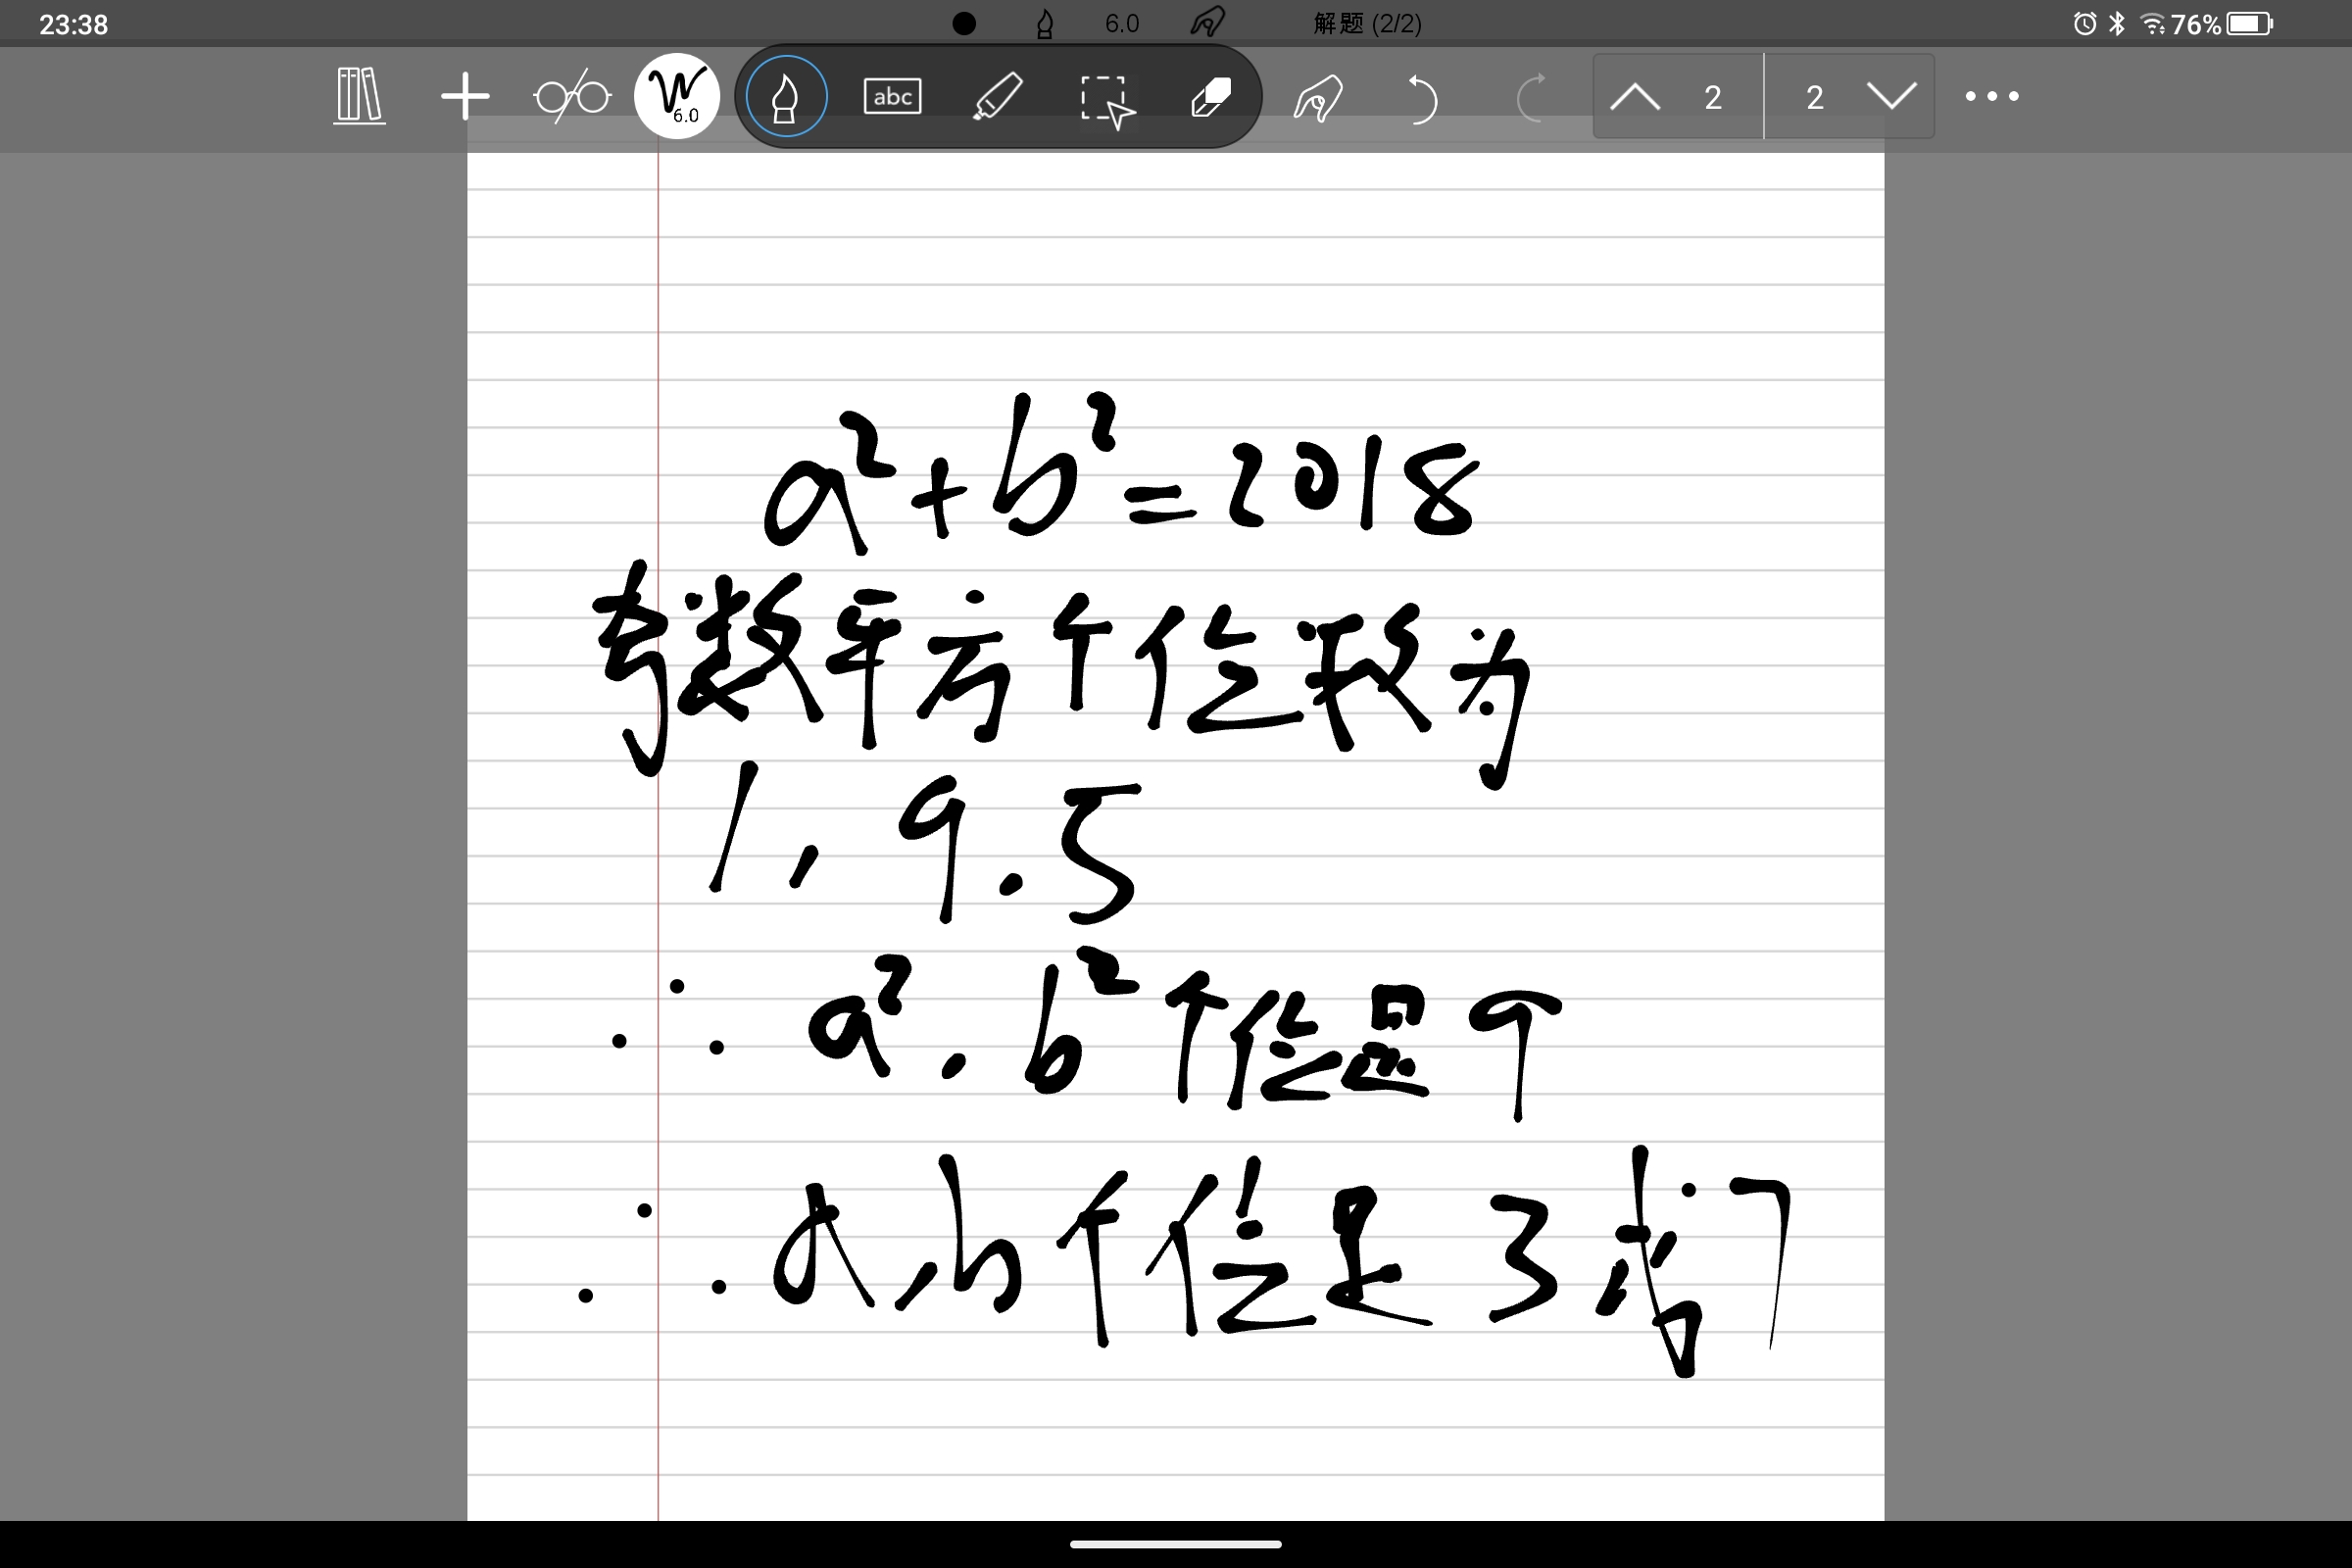 23:38 6.0 解题 (2/2) 76%
6.0 abc 2 2
a²+b²=2018
奇数平方个位数为
1, 9. 5
∴ a², b²个位是9
∴ a, b个位是 3或7